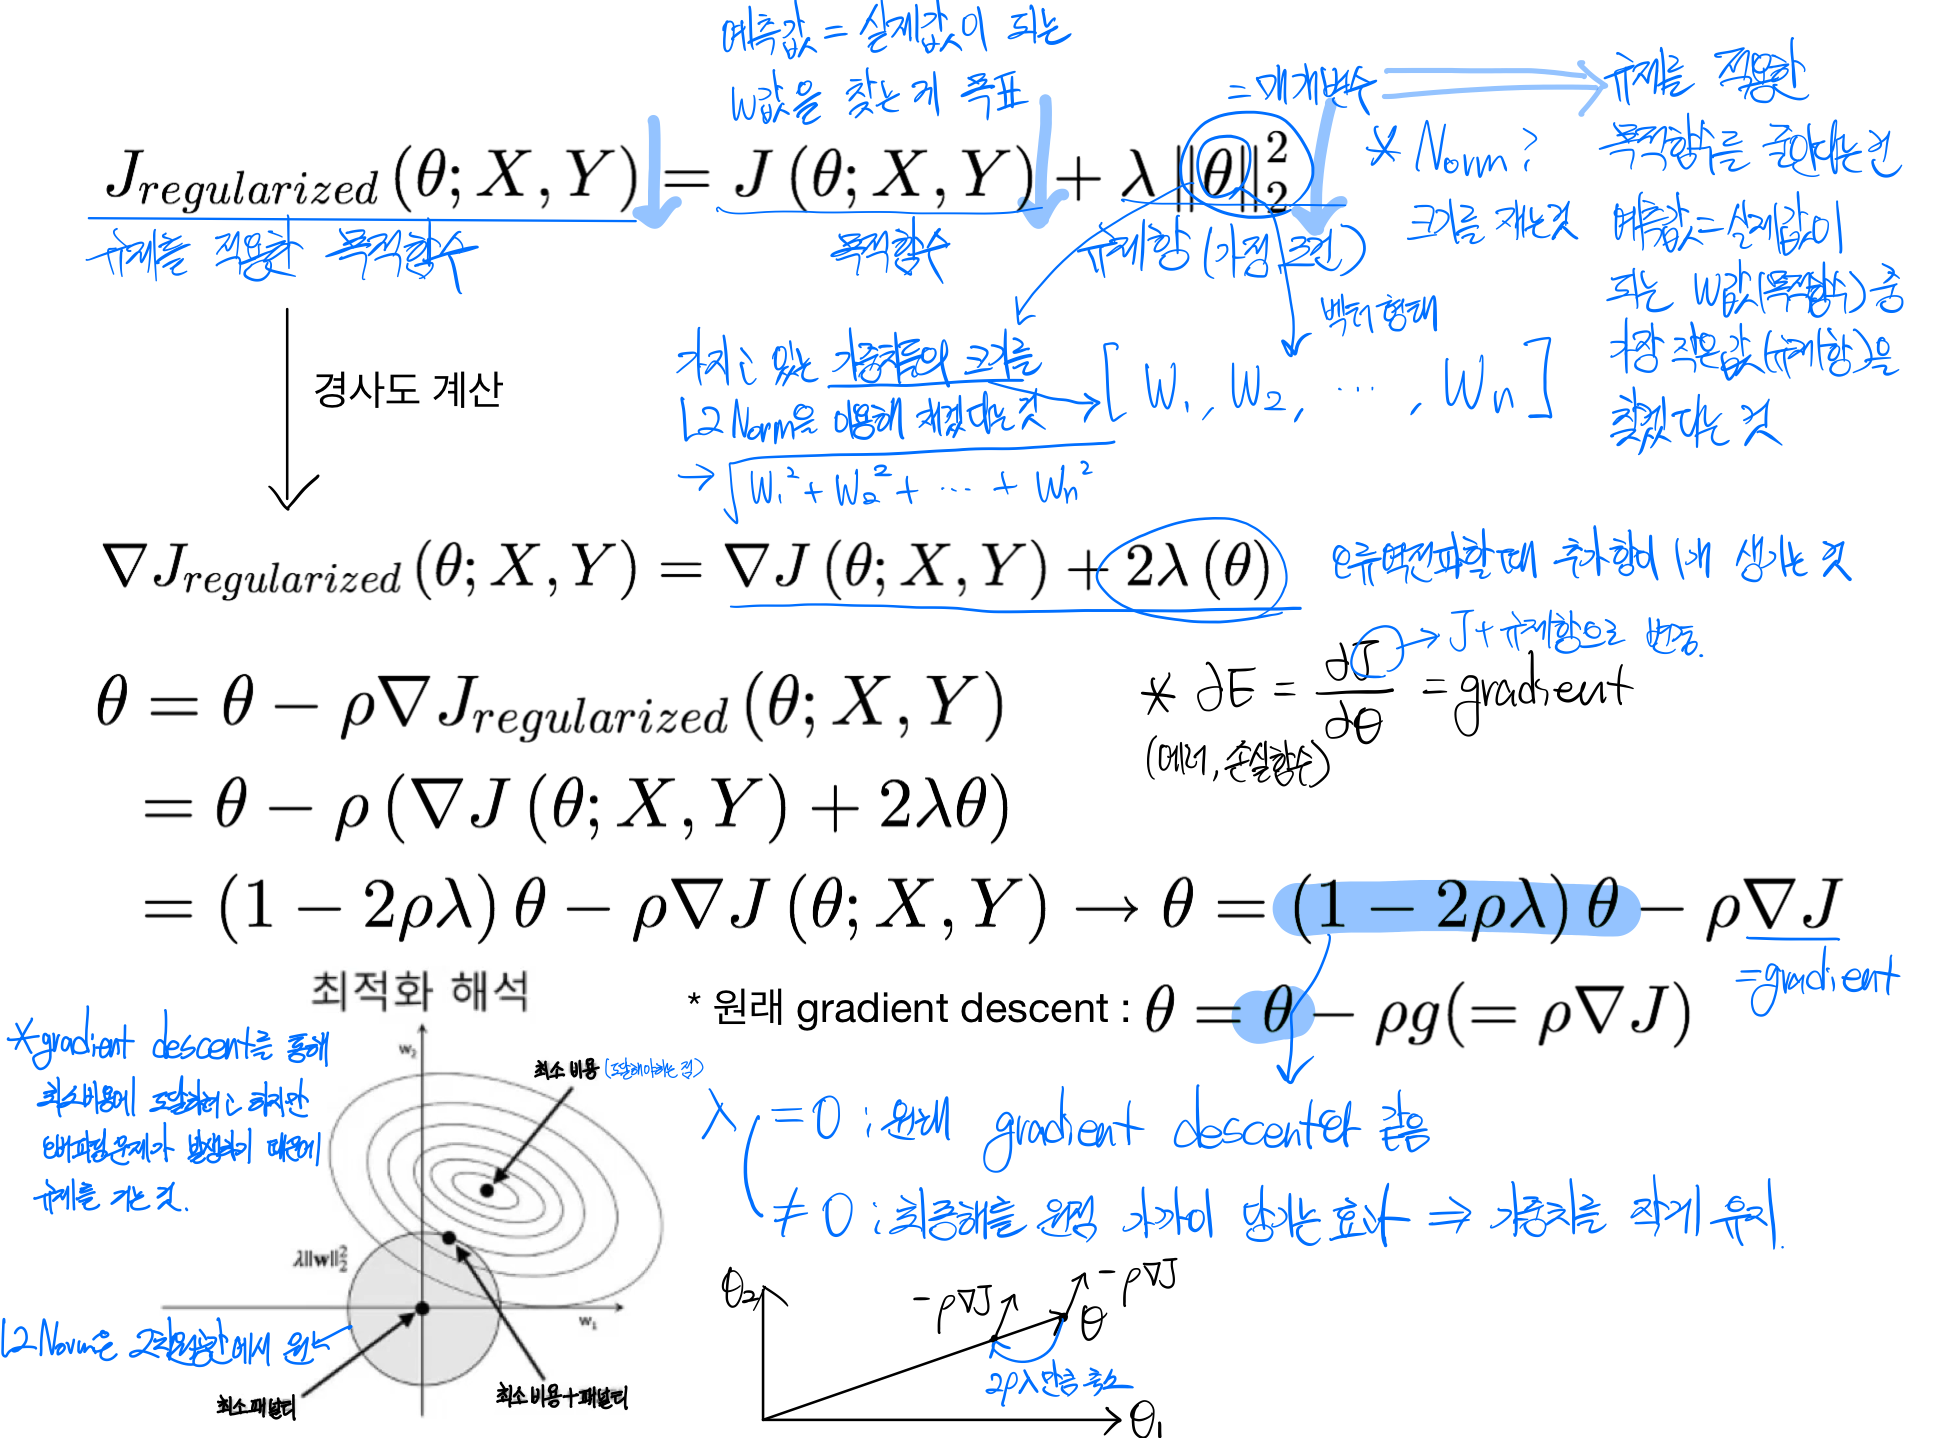 예측값 = 실제값이 되는
W값을 찾는 게 목표
= 매개변수
규제를 적용한
목적함수를 줄인다는 건
예측값=실제값이
되는 W값(목적함수) 중
가장 작은값(규제항)을
찾겠다는 것
* Norm?
크기를 재는것
J_{regularized}(θ; X, Y) = J(θ; X, Y) + λ‖θ‖_2^2
규제를 적용한 목적함수
목적함수
규제항 (가정, 조건)
벡터형태
경사도 계산
가지고 있는 가중치들의 크기를
L2 Norm을 이용해 재겠다는 것
[W_1, W_2, ⋯, W_n]
→ √(W_1^2 + W_2^2 + ⋯ + W_n^2)
∇J_{regularized}(θ; X, Y) = ∇J(θ; X, Y) + 2λ(θ)
오류역전파할때 추가항이 1개 생기는 것
→ J+규제항으로 변동.
* ∂E = ∂J/∂θ = gradient
(에러, 손실함수)
θ = θ − ρ∇J_{regularized}(θ; X, Y)
= θ − ρ(∇J(θ; X, Y) + 2λθ)
= (1 − 2ρλ)θ − ρ∇J(θ; X, Y) → θ = (1 − 2ρλ)θ − ρ∇J
=gradient
* 원래 gradient descent : θ = θ − ρg(= ρ∇J)
최적화 해석
*gradient descent를 통해
최소비용에 도달하려고 하지만
오버피팅문제가 발생하기 때문에
규제를 거는 것.
w_2
최소 비용 (도달해야하는 점)
λ‖w‖_2^2
w_1
L2 Norm은 2차원공간에서 원
최소 패널티
최소 비용+패널티
λ = 0 : 원래 gradient descent와 같음
≠ 0 : 최종해를 원점 가까이 당기는 효과 ⇒ 가중치를 작게 유지.
θ_2
−ρ∇J
−ρ∇J
θ
2ρλ만큼 축소
θ_1